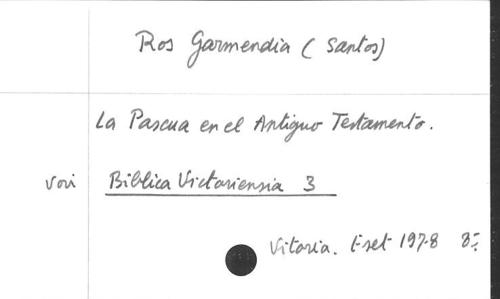 Ros Garmendia (Santos)
La Pascua en el Antiguo Testamento.
Biblica Victoriensia 3
Vitoria. Eset 1978 8º